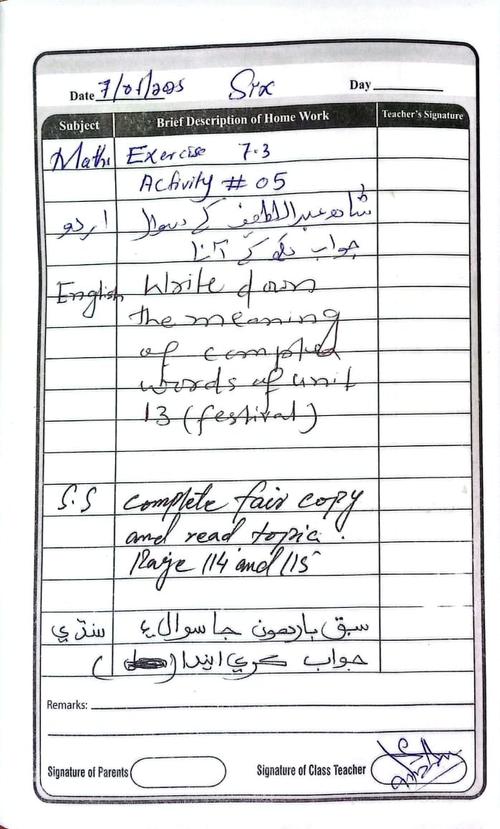 Date 7/01/2025 Six Day
Subject Brief Description of Home Work Teacher's Signature
Maths Exercise 7.3
Activity # 05
اردو شاھ عبداللطیف کے سوال
جواب لکھ کے آنا
English Write down
the meaning
of
words of unit
13 (festival)
S.S complete fair copy
and read topic.
Page 114 and 115
سنڌي سبق بارھون جا سوال ۽
جواب ڪري ايندا
Remarks:
Signature of Parents Signature of Class Teacher